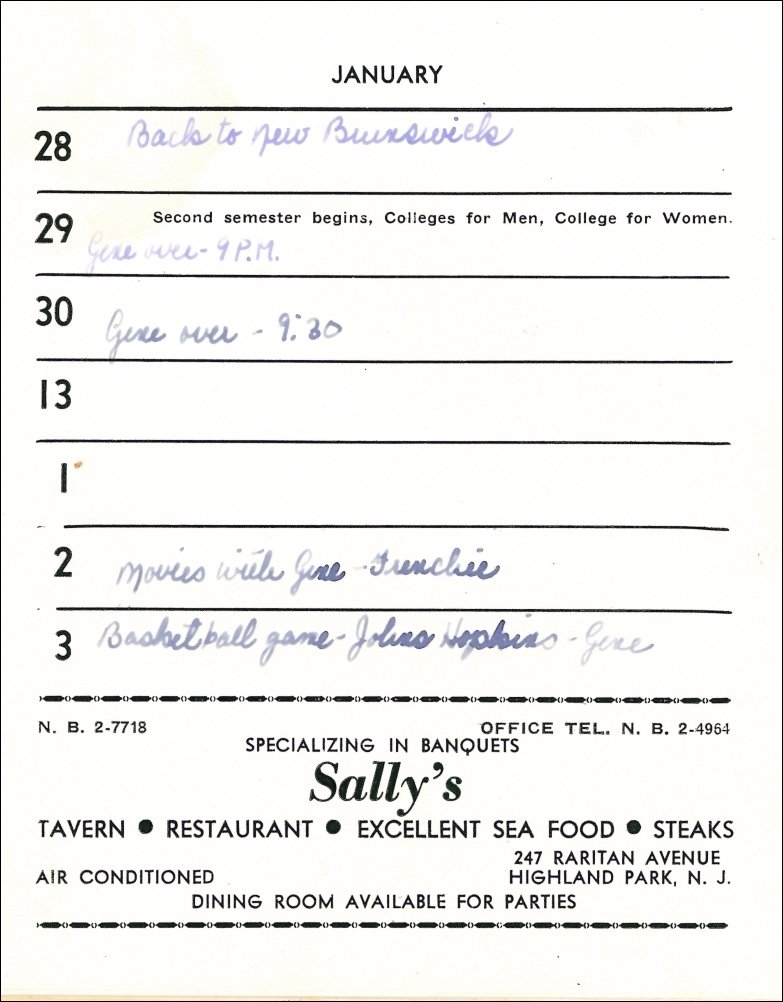 JANUARY
28 Back to New Brunswick
29 Second semester begins, Colleges for Men, College for Women.
Gene over - 9 P.M.
30 Gene over - 9:30
13
1
2 Movies with Gene - Frenchie
3 Basketball game - Johns Hopkins - Gene
N. B. 2-7718 OFFICE TEL. N. B. 2-4964
SPECIALIZING IN BANQUETS
Sally's
TAVERN ● RESTAURANT ● EXCELLENT SEA FOOD ● STEAKS
247 RARITAN AVENUE
AIR CONDITIONED HIGHLAND PARK, N. J.
DINING ROOM AVAILABLE FOR PARTIES